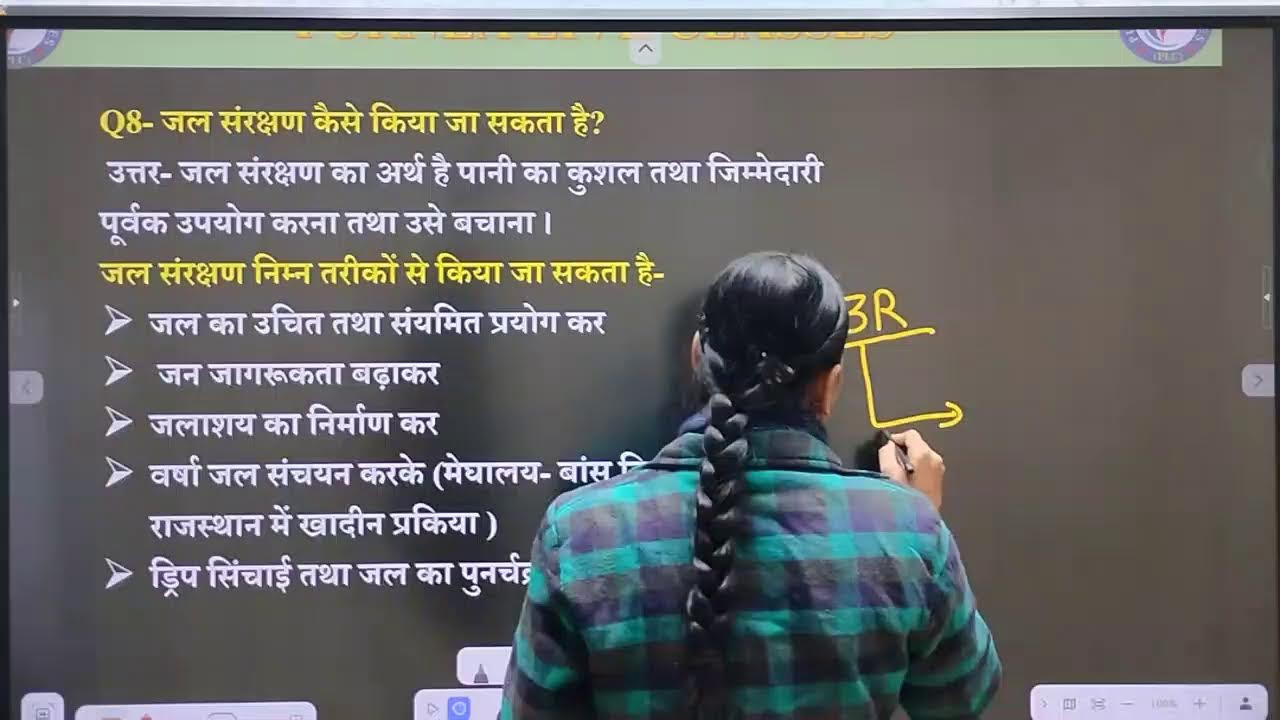 (PLC)
Q8- जल संरक्षण कैसे किया जा सकता है?
उत्तर- जल संरक्षण का अर्थ है पानी का कुशल तथा जिम्मेदारी
पूर्वक उपयोग करना तथा उसे बचाना।
जल संरक्षण निम्न तरीकों से किया जा सकता है-
➢ जल का उचित तथा संयमित प्रयोग कर
3R
➢ जन जागरूकता बढ़ाकर
➢ जलाशय का निर्माण कर
➢ वर्षा जल संचयन करके (मेघालय- बांस
राजस्थान में खादीन प्रकिया )
➢ ड्रिप सिंचाई तथा जल का
100%